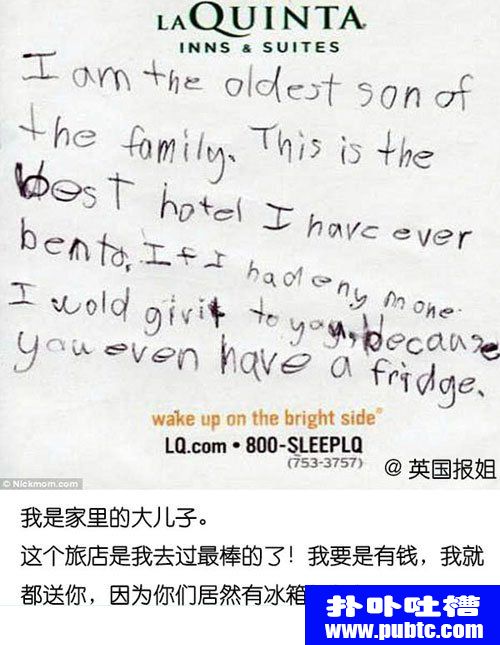 LAQUINTA
INNS & SUITES
I am the oldest son of
the family. This is the
best hotel I have ever
bento. If I had eny mone
I wold givit to yoy, because
you even have a fridge.
wake up on the bright side®
LQ.com • 800-SLEEPLQ
(753-3757)
@ 英国报姐
© Nickmom.com
我是家里的大儿子。
这个旅店是我去过最棒的了！我要是有钱，我就
都送你，因为你们居然有冰箱
扑卟吐槽
www.pubtc.com